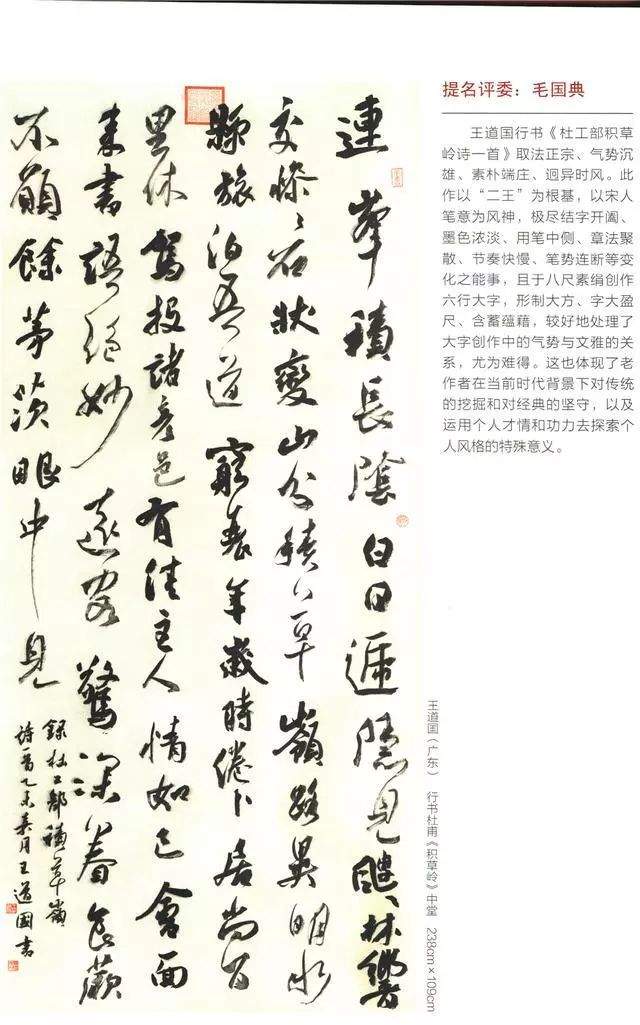 連峯積長陰白日遞隱見颼〻林響
交慘〻石狀變山分積草嶺路異明水
縣旅泊吾道窮衰年歲時倦卜居尚百
里休駕投諸彥邑有佳主人情如已會面
來書語絕妙遠客驚深眷食蕨
不願餘茅茨眼中見
錄杜工部積草嶺
詩一首乙未月王道國書
提名评委：毛国典
王道国行书《杜工部积草
岭诗一首》取法正宗、气势沉
雄、素朴端庄、迥异时风。此
作以“二王”为根基，以宋人
笔意为风神，极尽结字开阖、
墨色浓淡、用笔中侧、章法聚
散、节奏快慢、笔势连断等变
化之能事，且于八尺素绢创作
六行大字，形制大方、字大盈
尺、含蓄蕴藉，较好地处理了
大字创作中的气势与文雅的关
系，尤为难得。这也体现了老
作者在当前时代背景下对传统
的挖掘和对经典的坚守，以及
运用个人才情和功力去探索个
人风格的特殊意义。
王道国（广东） 行书杜甫《积草岭》中堂 238cm×109cm